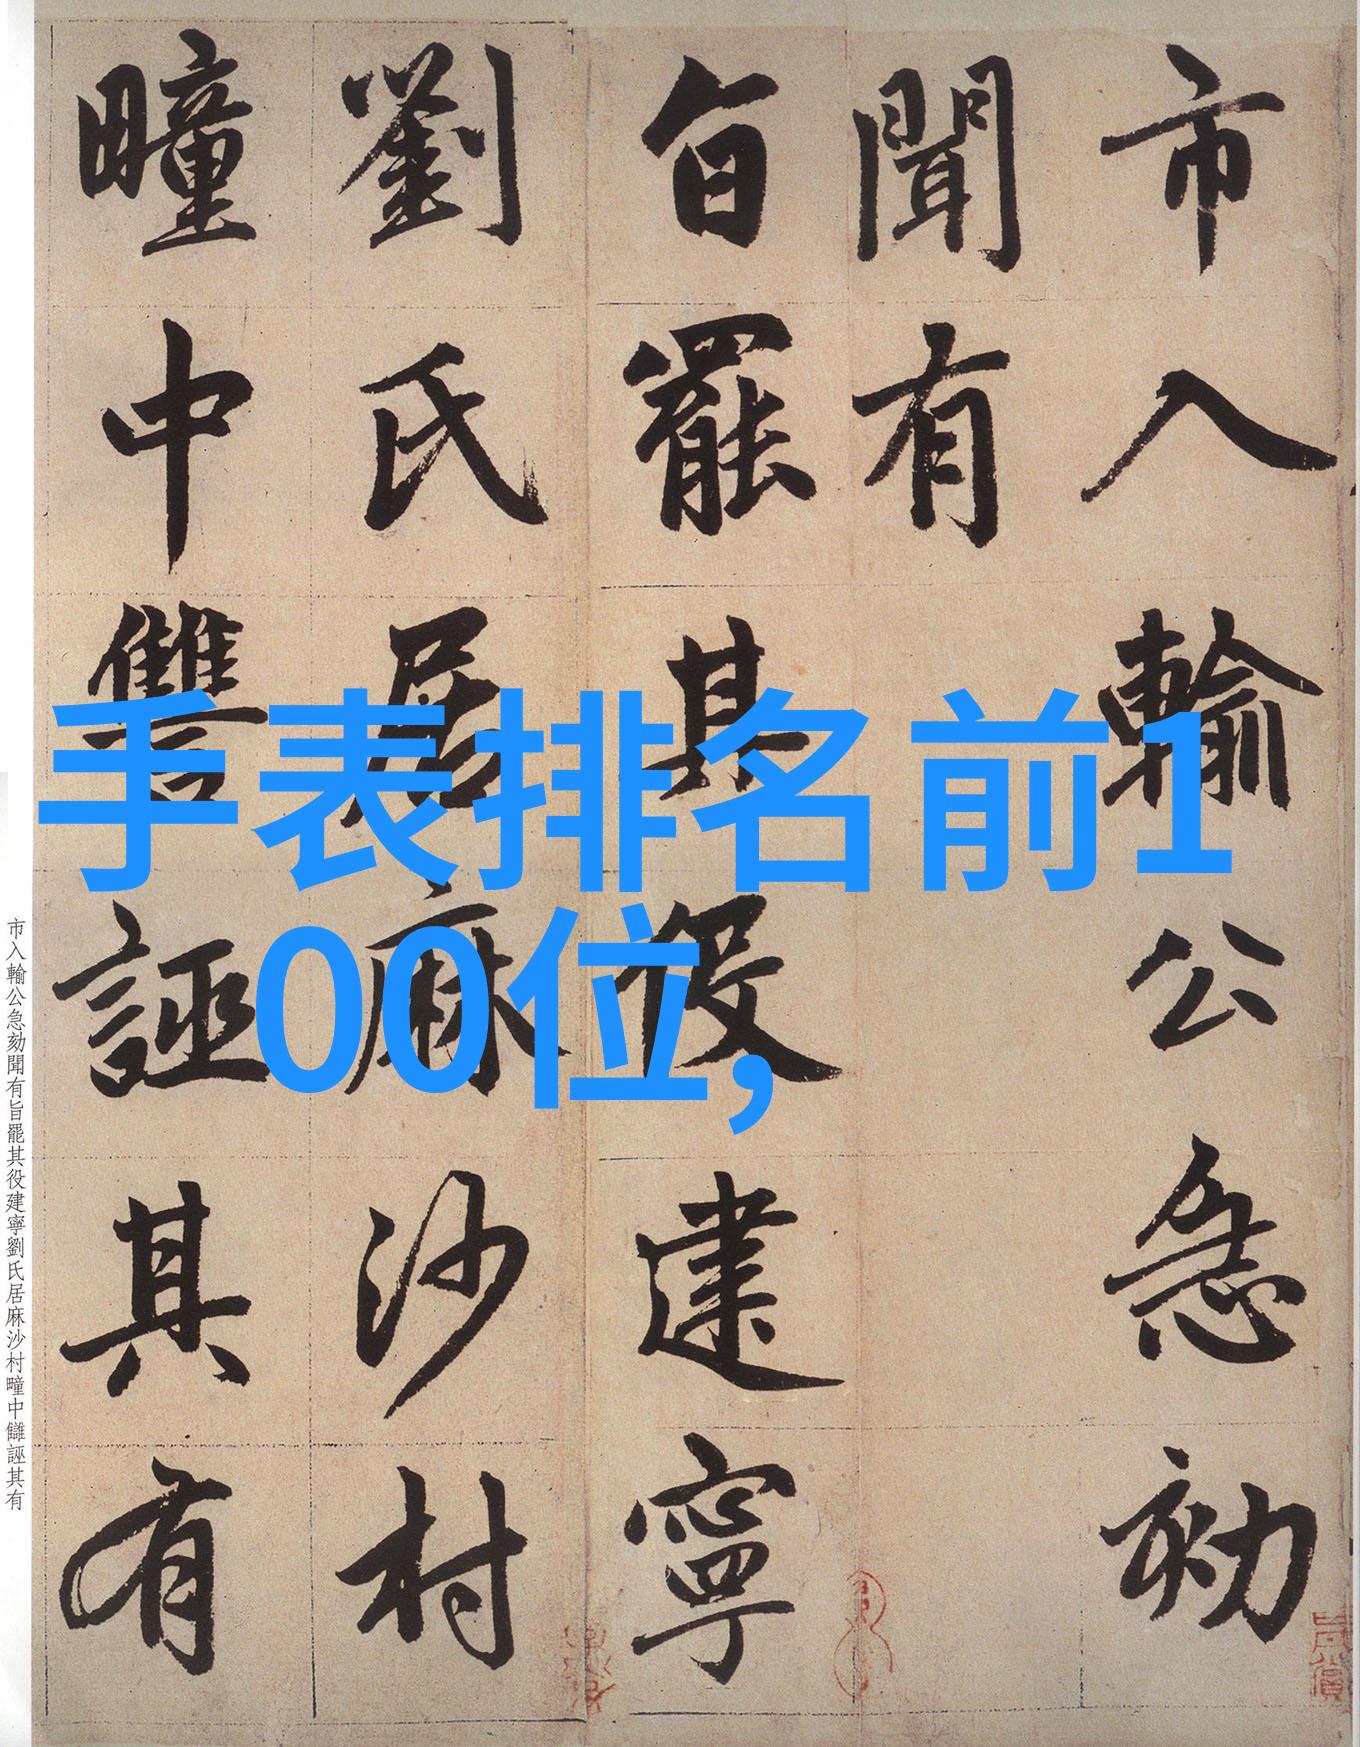 市入輸公急劾
聞有
旨罷其役建寧
劉氏居麻沙村
疃中讐誣其有
手表排名前1
00位,
市入輸公急劾聞有旨罷其役建寧劉氏居麻沙村疃中讎誣其有